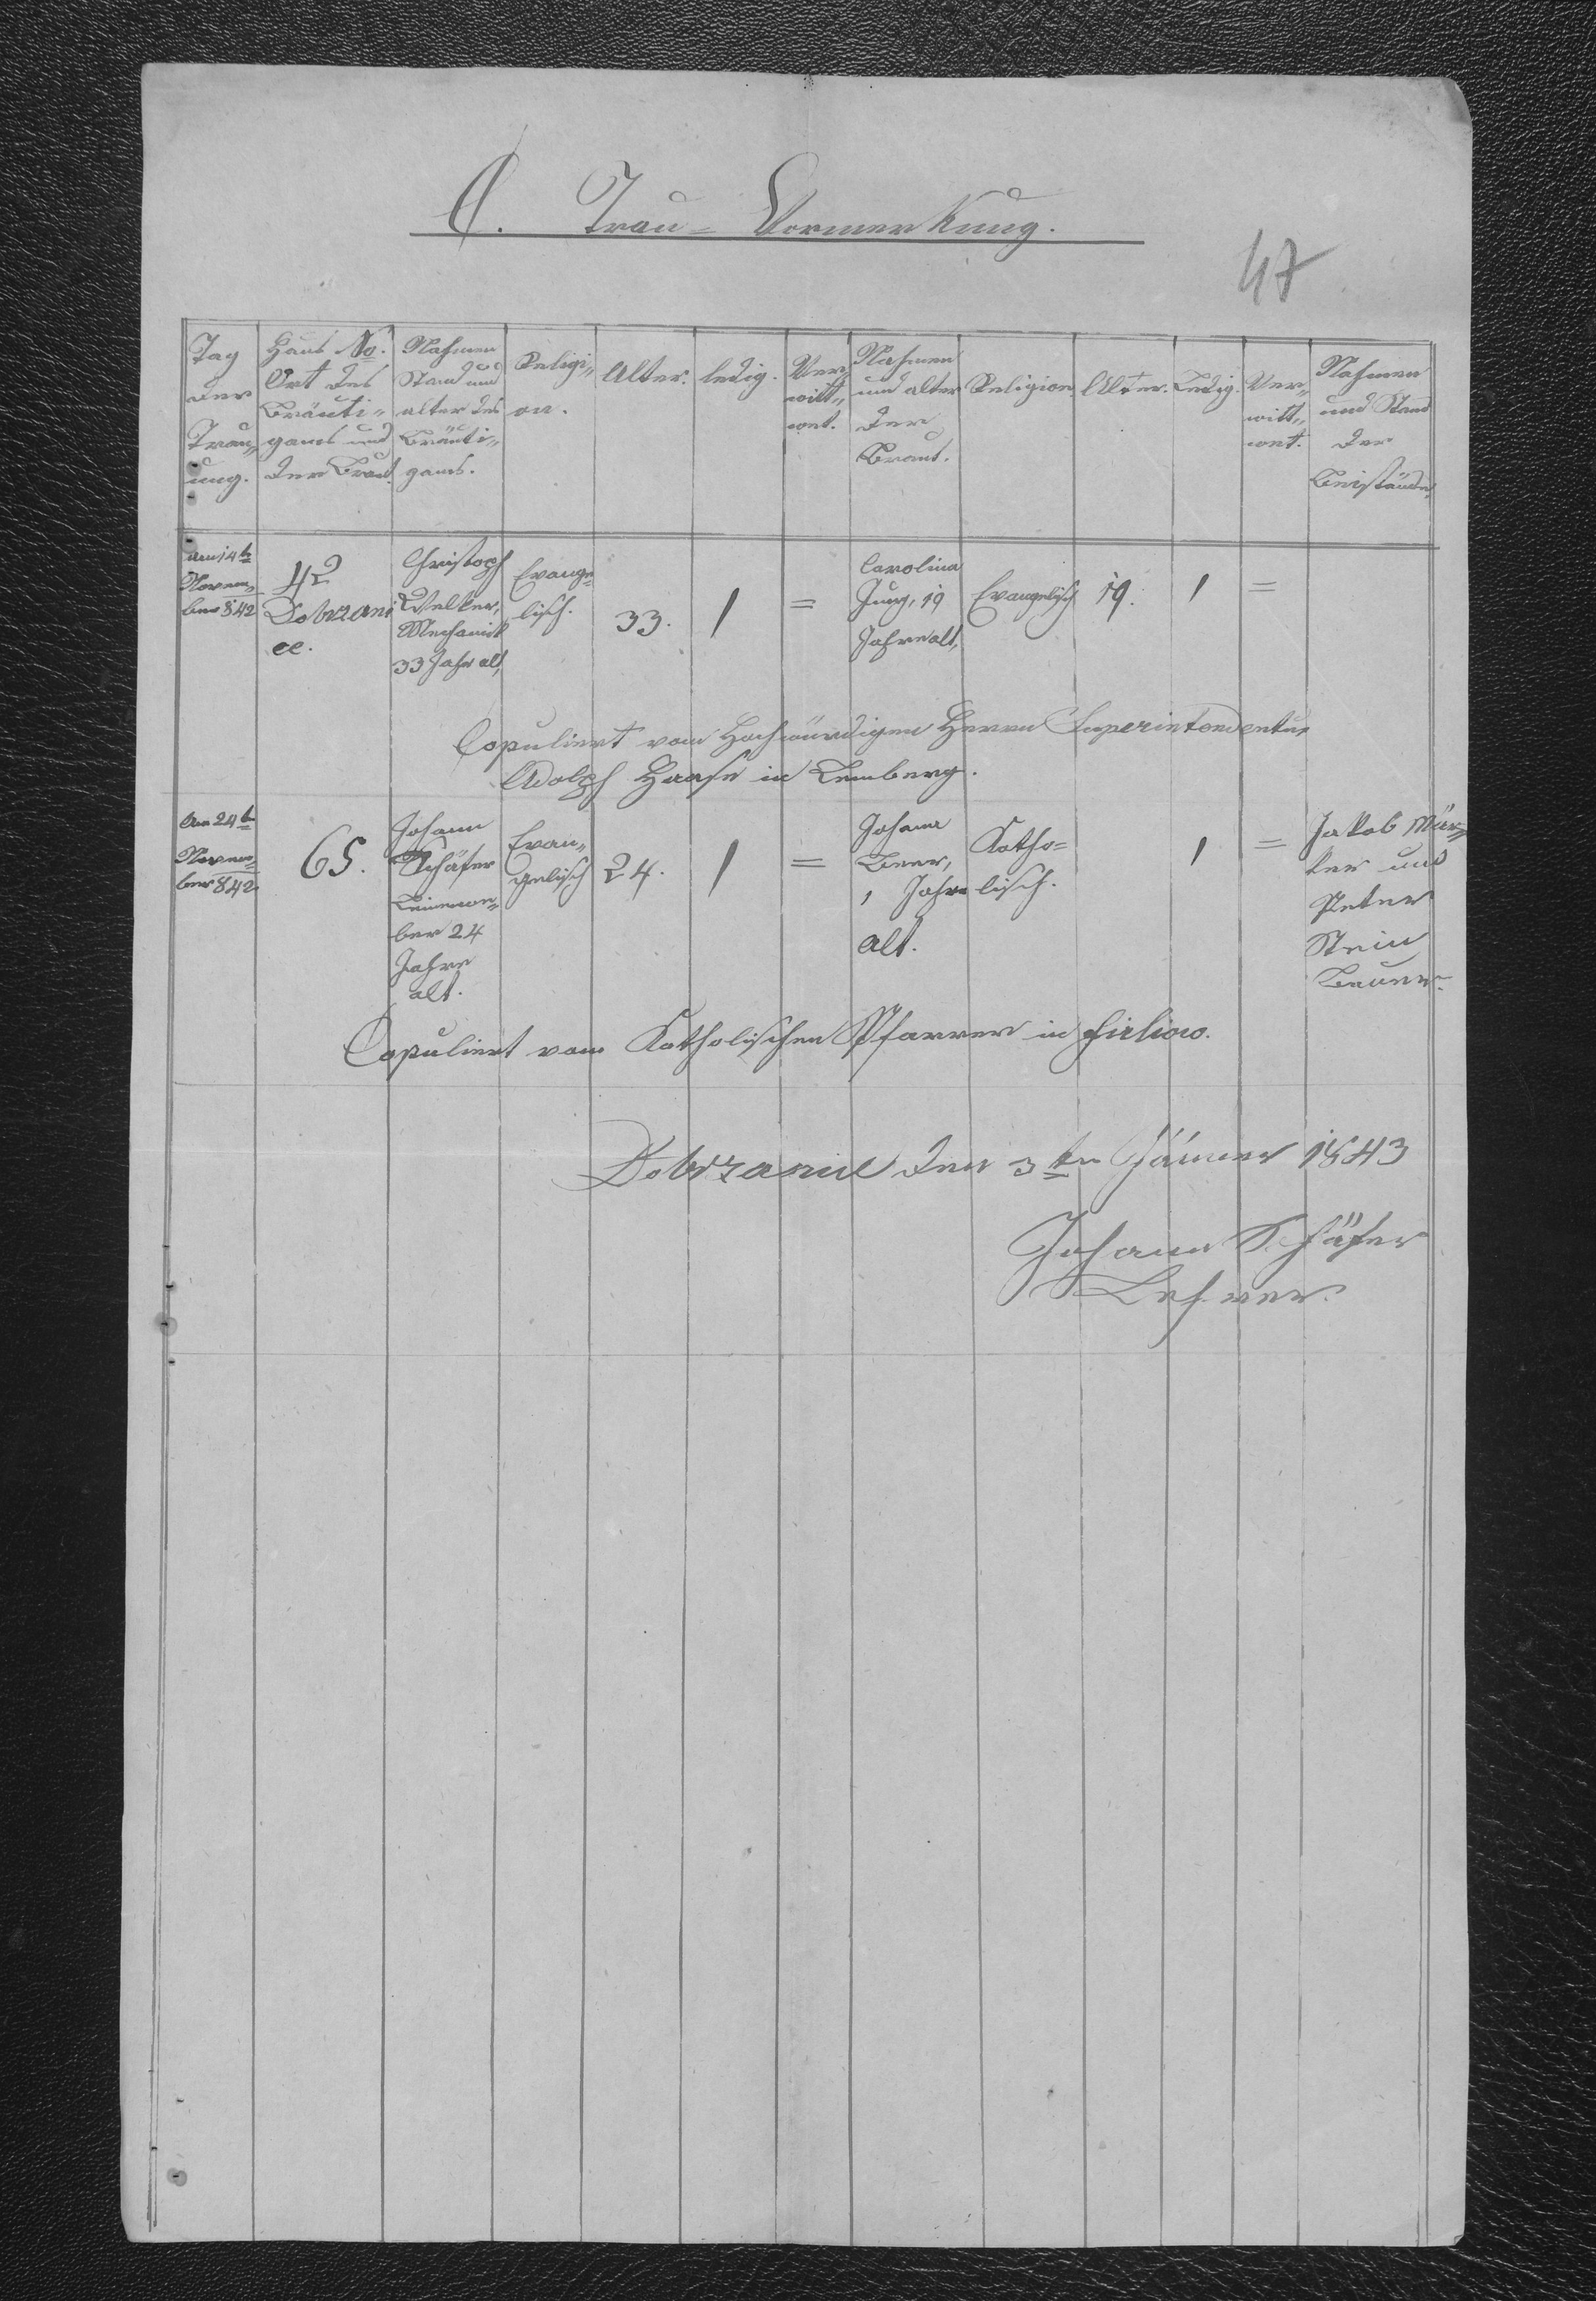 C. Trau-Vormerkung.
47
Tag der Trau„ ung.
Haus No. Ort des Bräuti„ gams und der Braut.
Nahmen Stand und alter des Bräuti„ gams.
Religi„ on.
Alter.
ledig.
Ver„ witt„ wet.
Nahmen und alter der Braut.
Religion
Alter.
Ledig.
Ver„ witt„ wet.
Nahmen und Stand der Beistände
am 14t Novem„ ber 842
42 Dobrzani ce.
Christoph Welker, Mechanik 33 Jahr alt,
Evange„ lisch.
33.
1
=
Carolina Jung, 19 Jahre alt,
Evangelisch
19.
1
=
Copuliert vom Hochwürdigen Herrn Superintendentur
Adolph Haase in Lemberg.
Am 24t Novem„ ber 842.
65.
Johann Schäfer Leinewe„ ber 24 Jahre alt.
Evan„ gelisch
24.
1
=
Johana Beer, 1 Jahre alt.
Katho= lisch.
1
=
Jakob Mär„ ker und Peter Stein Bauer.
Copuliert vom Katholischen Pfarrer in Firliow.
Dobrzanice den 3ten Jäner 1843
Johann Schäfer
Lehrer.